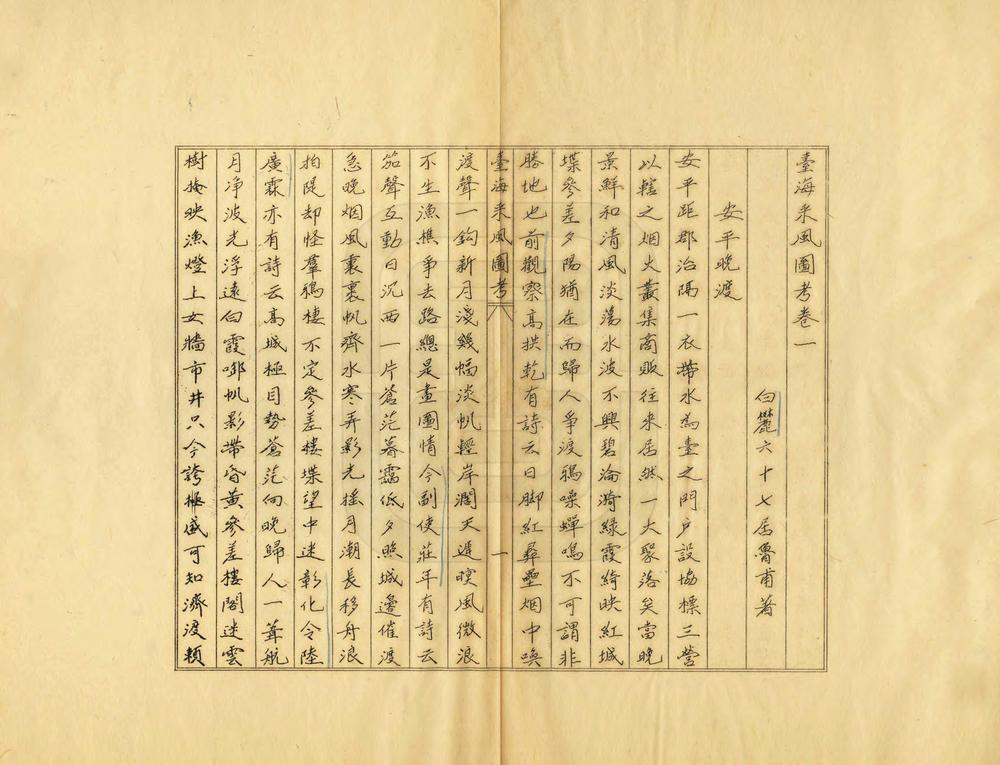 臺海采風圖考卷一
白麓六十七居魯甫著
安平晚渡
安平距郡治隔一衣帶水為臺之門戶設協標三營
以轄之烟火叢集商販往來居然一大聚落矣當晚
景鮮和清風淡蕩水波不興碧淪漪綠霞綺映紅城
堞參差夕陽猶在而歸人爭渡鴉噪蟬鳴不可謂非
勝地也前觀察高拱乾有詩云日脚紅彝壘烟中喚
臺海采風圖考 一
渡聲一鈎新月淺幾幅淡帆輕岸濶天遲暝風微浪
不生漁樵爭去路總是畫圖情今副使莊年有詩云
笳聲互動日沉西一片蒼茫暮靄低夕照城邊催渡
急晚烟風裏裹帆齊水寒弄影光搖月潮長移舟浪
拍隄却怪羣鴉棲不定參差樓堞望中迷彰化令陸
廣霖亦有詩云高城極目勢蒼茫向晚歸人一葦航
月净波光浮遠白霞啣帆影帶昏黃參差樓閣迷雲
樹掩映漁燈上女牆市井只今誇極盛可知濟渡頼